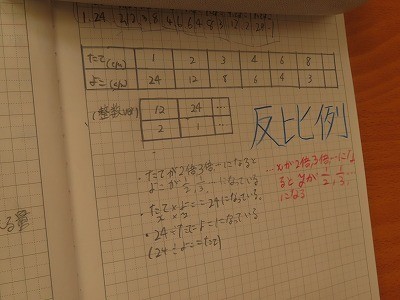 たて(cm) 1 2 3 4 6 8
よこ(cm) 24 12 8 6 4 3
(整数のとき)
12 24 …
2 1 …
反比例
・たてが2倍3倍…になると
よこが 1/2, 1/3, …になっている
・たて×よこ=24になっている。
x
・24÷たて=よこになっている。
(24÷よこ=たて)
…xが2倍,3倍…にな
るとyが 1/2, 1/3…
になる